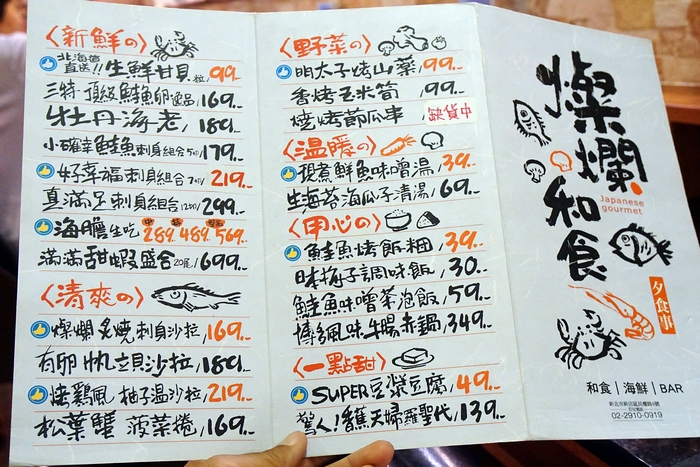 〈新鮮の〉
北海道直送!! 生鮮甘貝 粒 99.-
三特-頂級鮭魚卵逸品/169.-
牡丹海老/189.-
小確幸鮭魚刺身組合5切/179.-
好幸福刺身組合7切/219.-
真滿足刺身組合12切/299.-
海膽生吃 289. 489. 569.-
滿滿甜蝦盛合20尾/699.-
〈清爽の〉
燦爛炙燒刺身沙拉/169.-
有卵帆立貝沙拉/189.-
燒鷄風 柚子温沙拉/219.-
松葉蟹 菠菜捲/169.-
〈野菜の〉
明太子烤山藥/99.-
香烤玉米筍/99.-
燒烤節瓜事/缺貨中
〈温暖の〉
現煮鮮魚味噌湯/39.-
生海苔海瓜子清湯/69.-
〈用心の〉
鮭魚烤飯糰/39.-
日本梅子調味飯/30.-
鮭魚味噌茶泡飯/59.-
博多風味牛腸赤鍋/349.-
〈一點甜〉
SUPER豆漿豆腐/49.-
驚く!香蕉天婦羅聖代/139.-
燦爛
Japanese gourmet
和食
夕食事
和食｜海鮮｜BAR
02-2910-0919